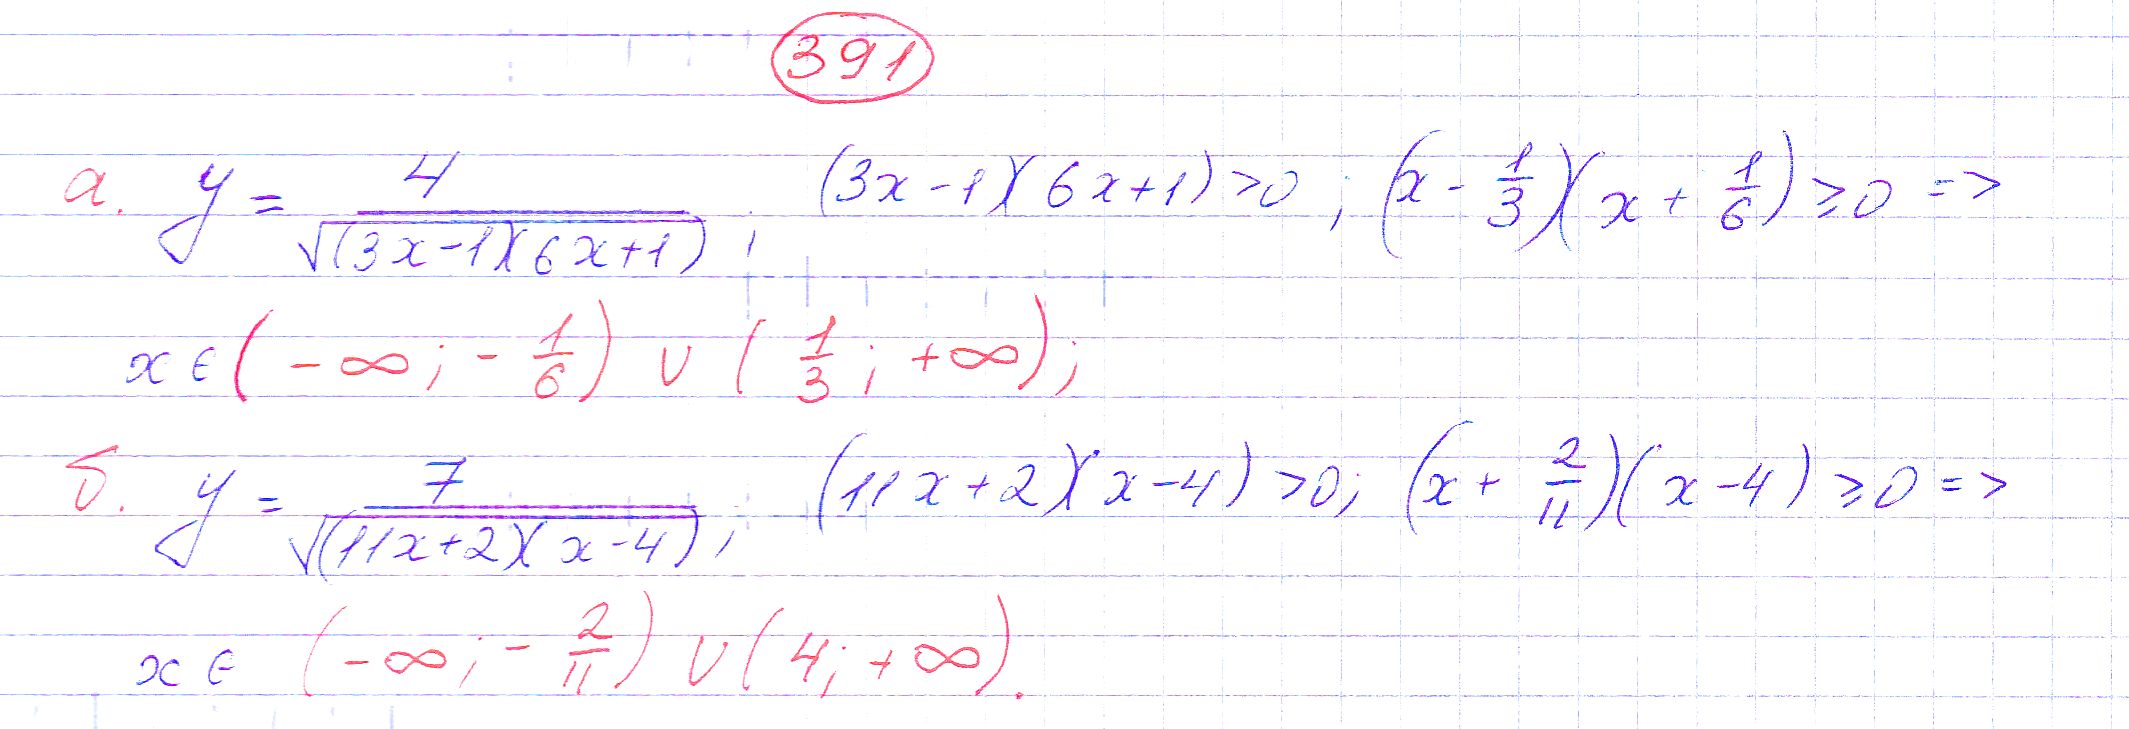 391
а. y = 4/√((3x-1)(6x+1)); (3x-1)(6x+1)>0; (x - 1/3)(x + 1/6) ≥ 0 =>
x ∈ (-∞; -1/6) ∪ (1/3; +∞);
б. y = 7/√((11x+2)(x-4)); (11x+2)(x-4)>0; (x + 2/11)(x-4) ≥ 0 =>
x ∈ (-∞; -2/11) ∪ (4; +∞).